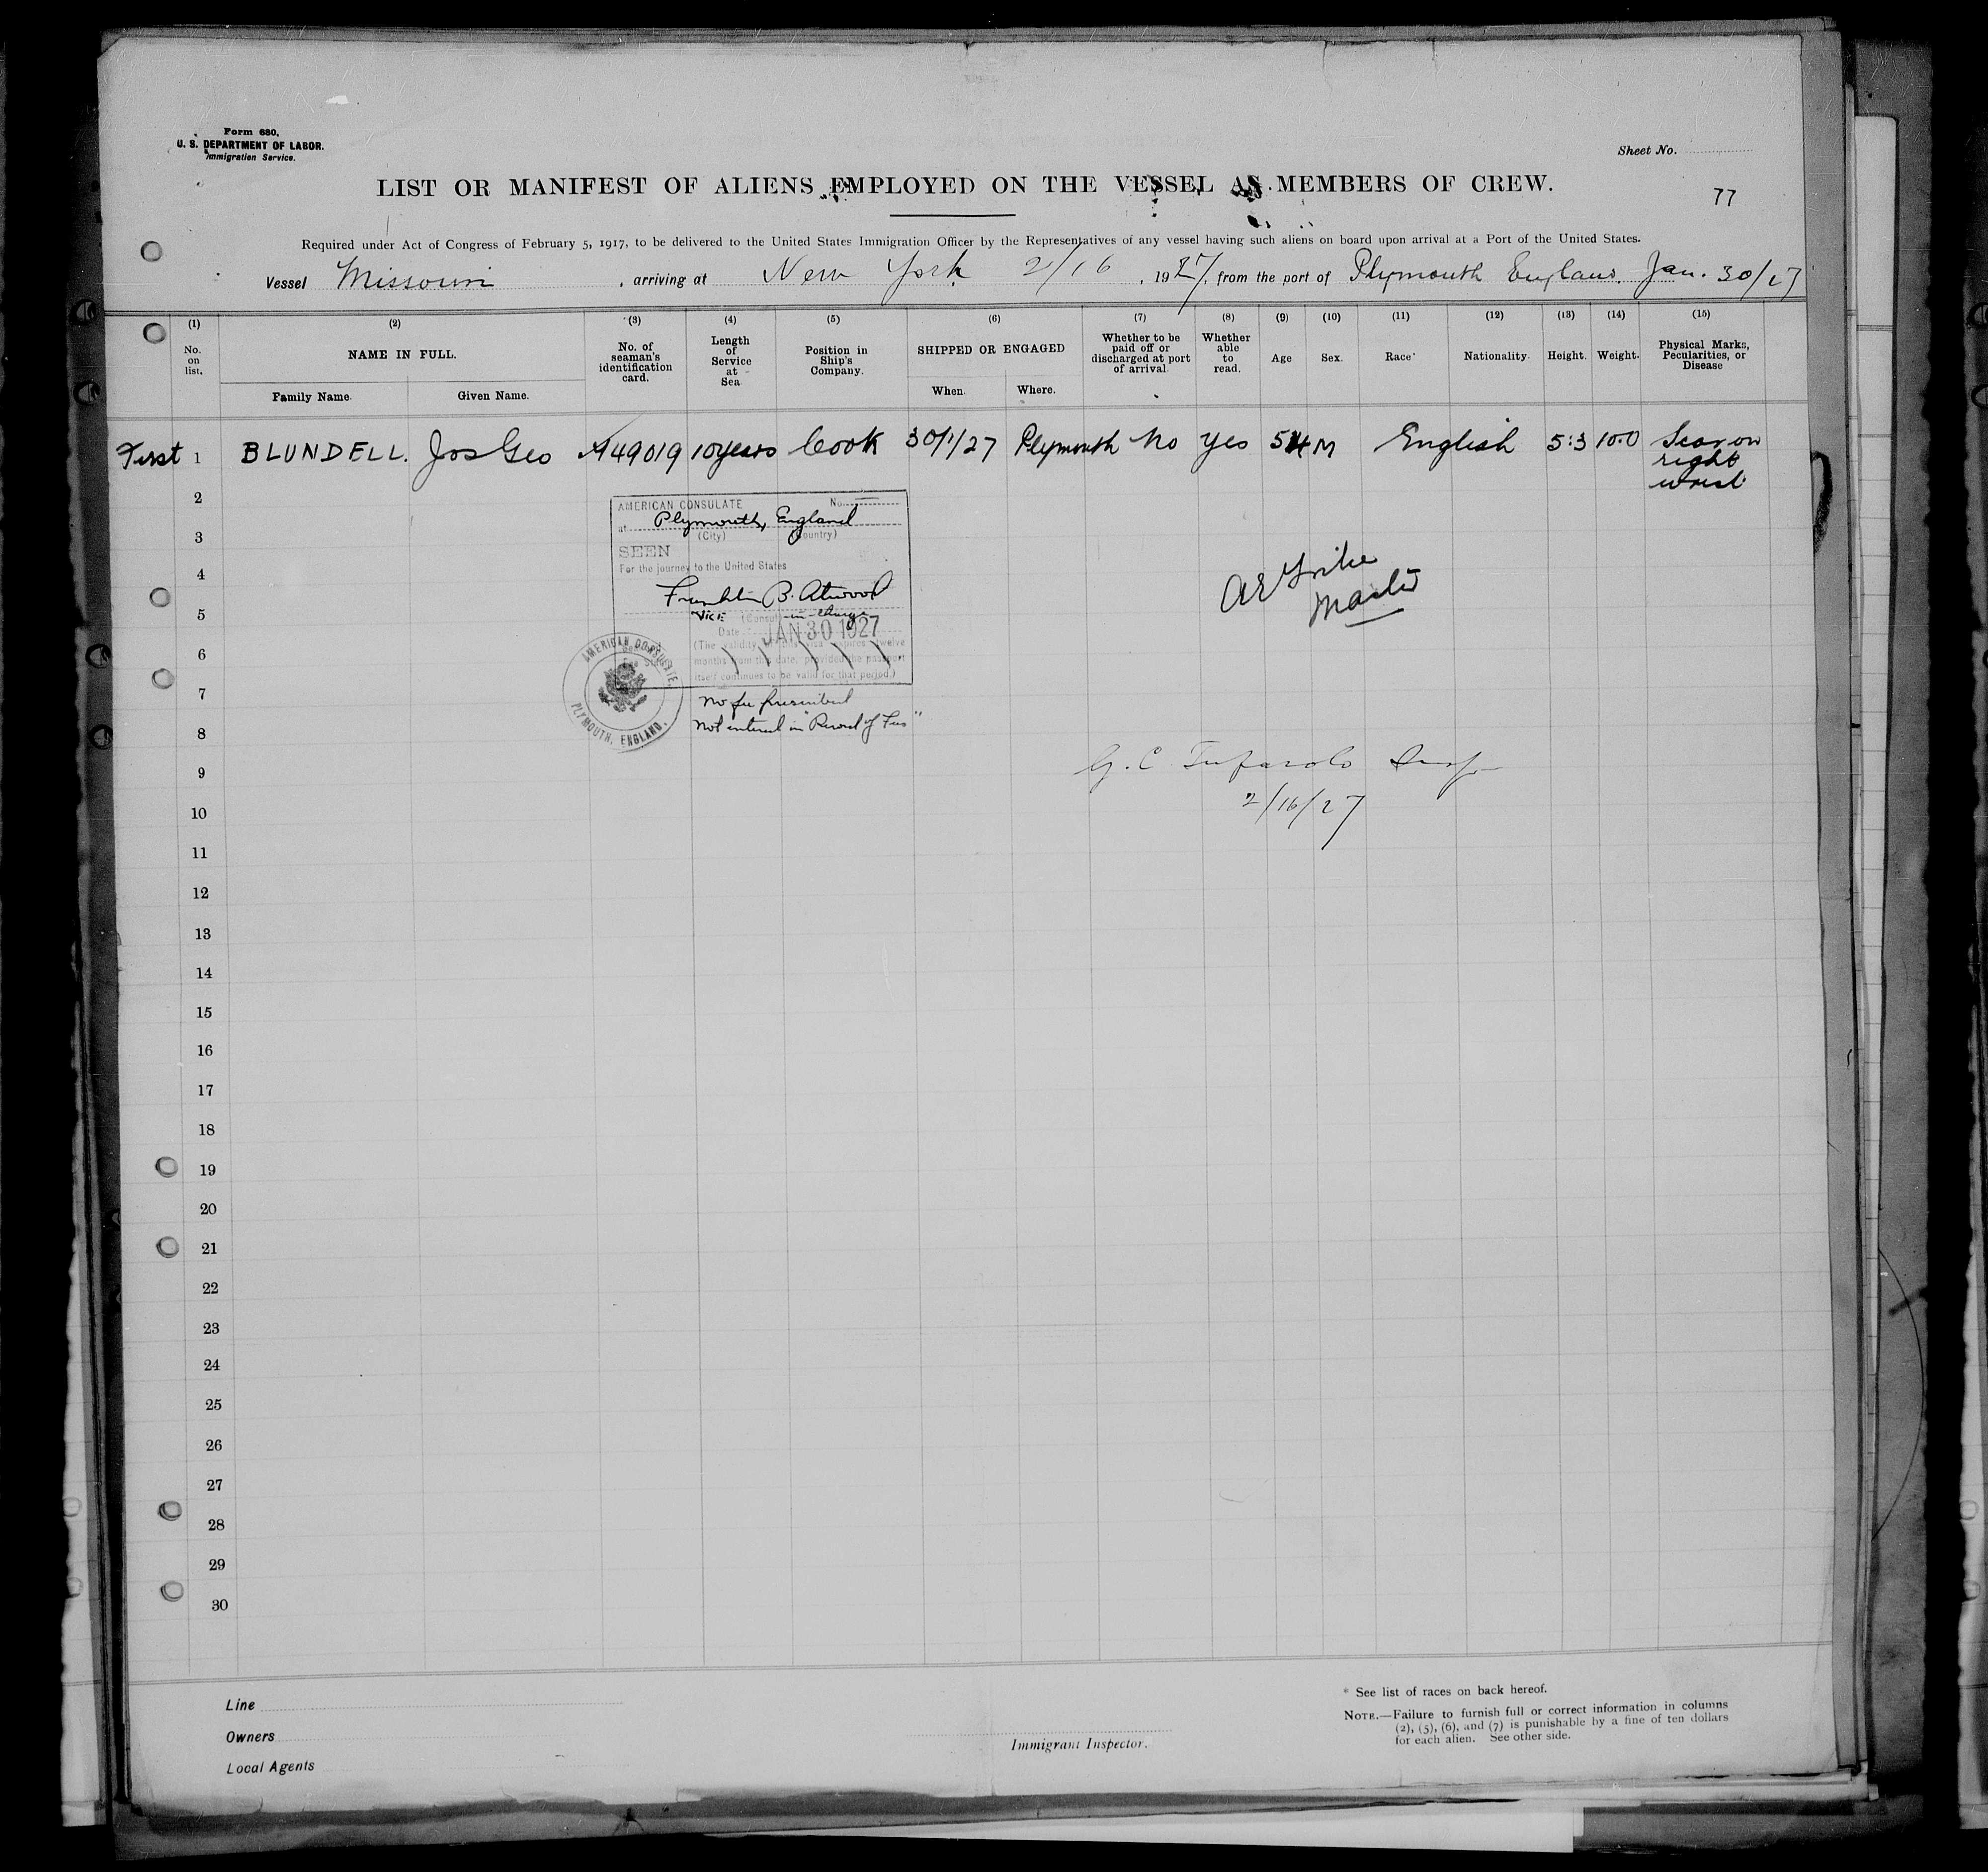 Form 680,
U. S. DEPARTMENT OF LABOR.
Immigration Service.
Sheet No.
LIST OR MANIFEST OF ALIENS EMPLOYED ON THE VESSEL AS MEMBERS OF CREW.
77
Required under Act of Congress of February 5, 1917, to be delivered to the United States Immigration Officer by the Representatives of any vessel having such aliens on board upon arrival at a Port of the United States.
Vessel Missouri , arriving at New York 2/16 , 1927, from the port of Plymouth England. Jan. 30/27
(1) (2) (3) (4) (5) (6) (7) (8) (9) (10) (11) (12) (13) (14) (15)
No. on list. NAME IN FULL. No. of seaman's identification card. Length of Service at Sea Position in Ship's Company. SHIPPED OR ENGAGED Whether to be paid off or discharged at port of arrival Whether able to read. Age Sex. Race* Nationality. Height. Weight. Physical Marks, Pecularities, or Disease
Family Name. Given Name. When. Where.
First 1 BLUNDELL. Jos Geo 449019 10 years Cook 30/1/27 Plymouth No Yes 54 M English 5:3 10.0 Scar on right wrist
2
3
4
5
6
7
8
9
10
11
12
13
14
15
16
17
18
19
20
21
22
23
24
25
26
27
28
29
30
AMERICAN CONSULATE No.
at Plymouth, England
(City) (Country)
SEEN
For the journey to the United States
Franklin B. Atwood
Vice (Consul) in charge
Date JAN 30 1927
(The validity of this visa expires twelve
months from this date, provided the passport
itself continues to be valid for that period.)
AMERICAN CONSULATE, PLYMOUTH, ENGLAND.
No fee prescribed
Not entered in "Record of Fees"
Master
G. C. Insp
2/16/27
Line
Owners
Local Agents
Immigrant Inspector.
* See list of races on back hereof.
NOTE.—Failure to furnish full or correct information in columns
(2), (5), (6), and (7) is punishable by a fine of ten dollars
for each alien. See other side.